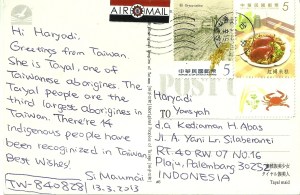 AIR MAIL
Hi Haryadi.
Greetings from Taiwan.
She is Tayal, one of
Taiwanese aborigines. The
Tayal people are the
third largest aborigines in
Taiwan. There're 14
Indigenous people have
been recognized in Taiwan.
Best Wishes!
Si Maumau
TW-840828
13.3.2013
中華民國郵票
5
中華民國郵票
5
POST
Haryadi
Yansyah
d.a Kediaman H. Abas
Jl. A. Yani Lr. Silaberanti
RT. 40 RW 07 No. 16
Plaju, Palembang 30257
INDONESIA
Tayal maid